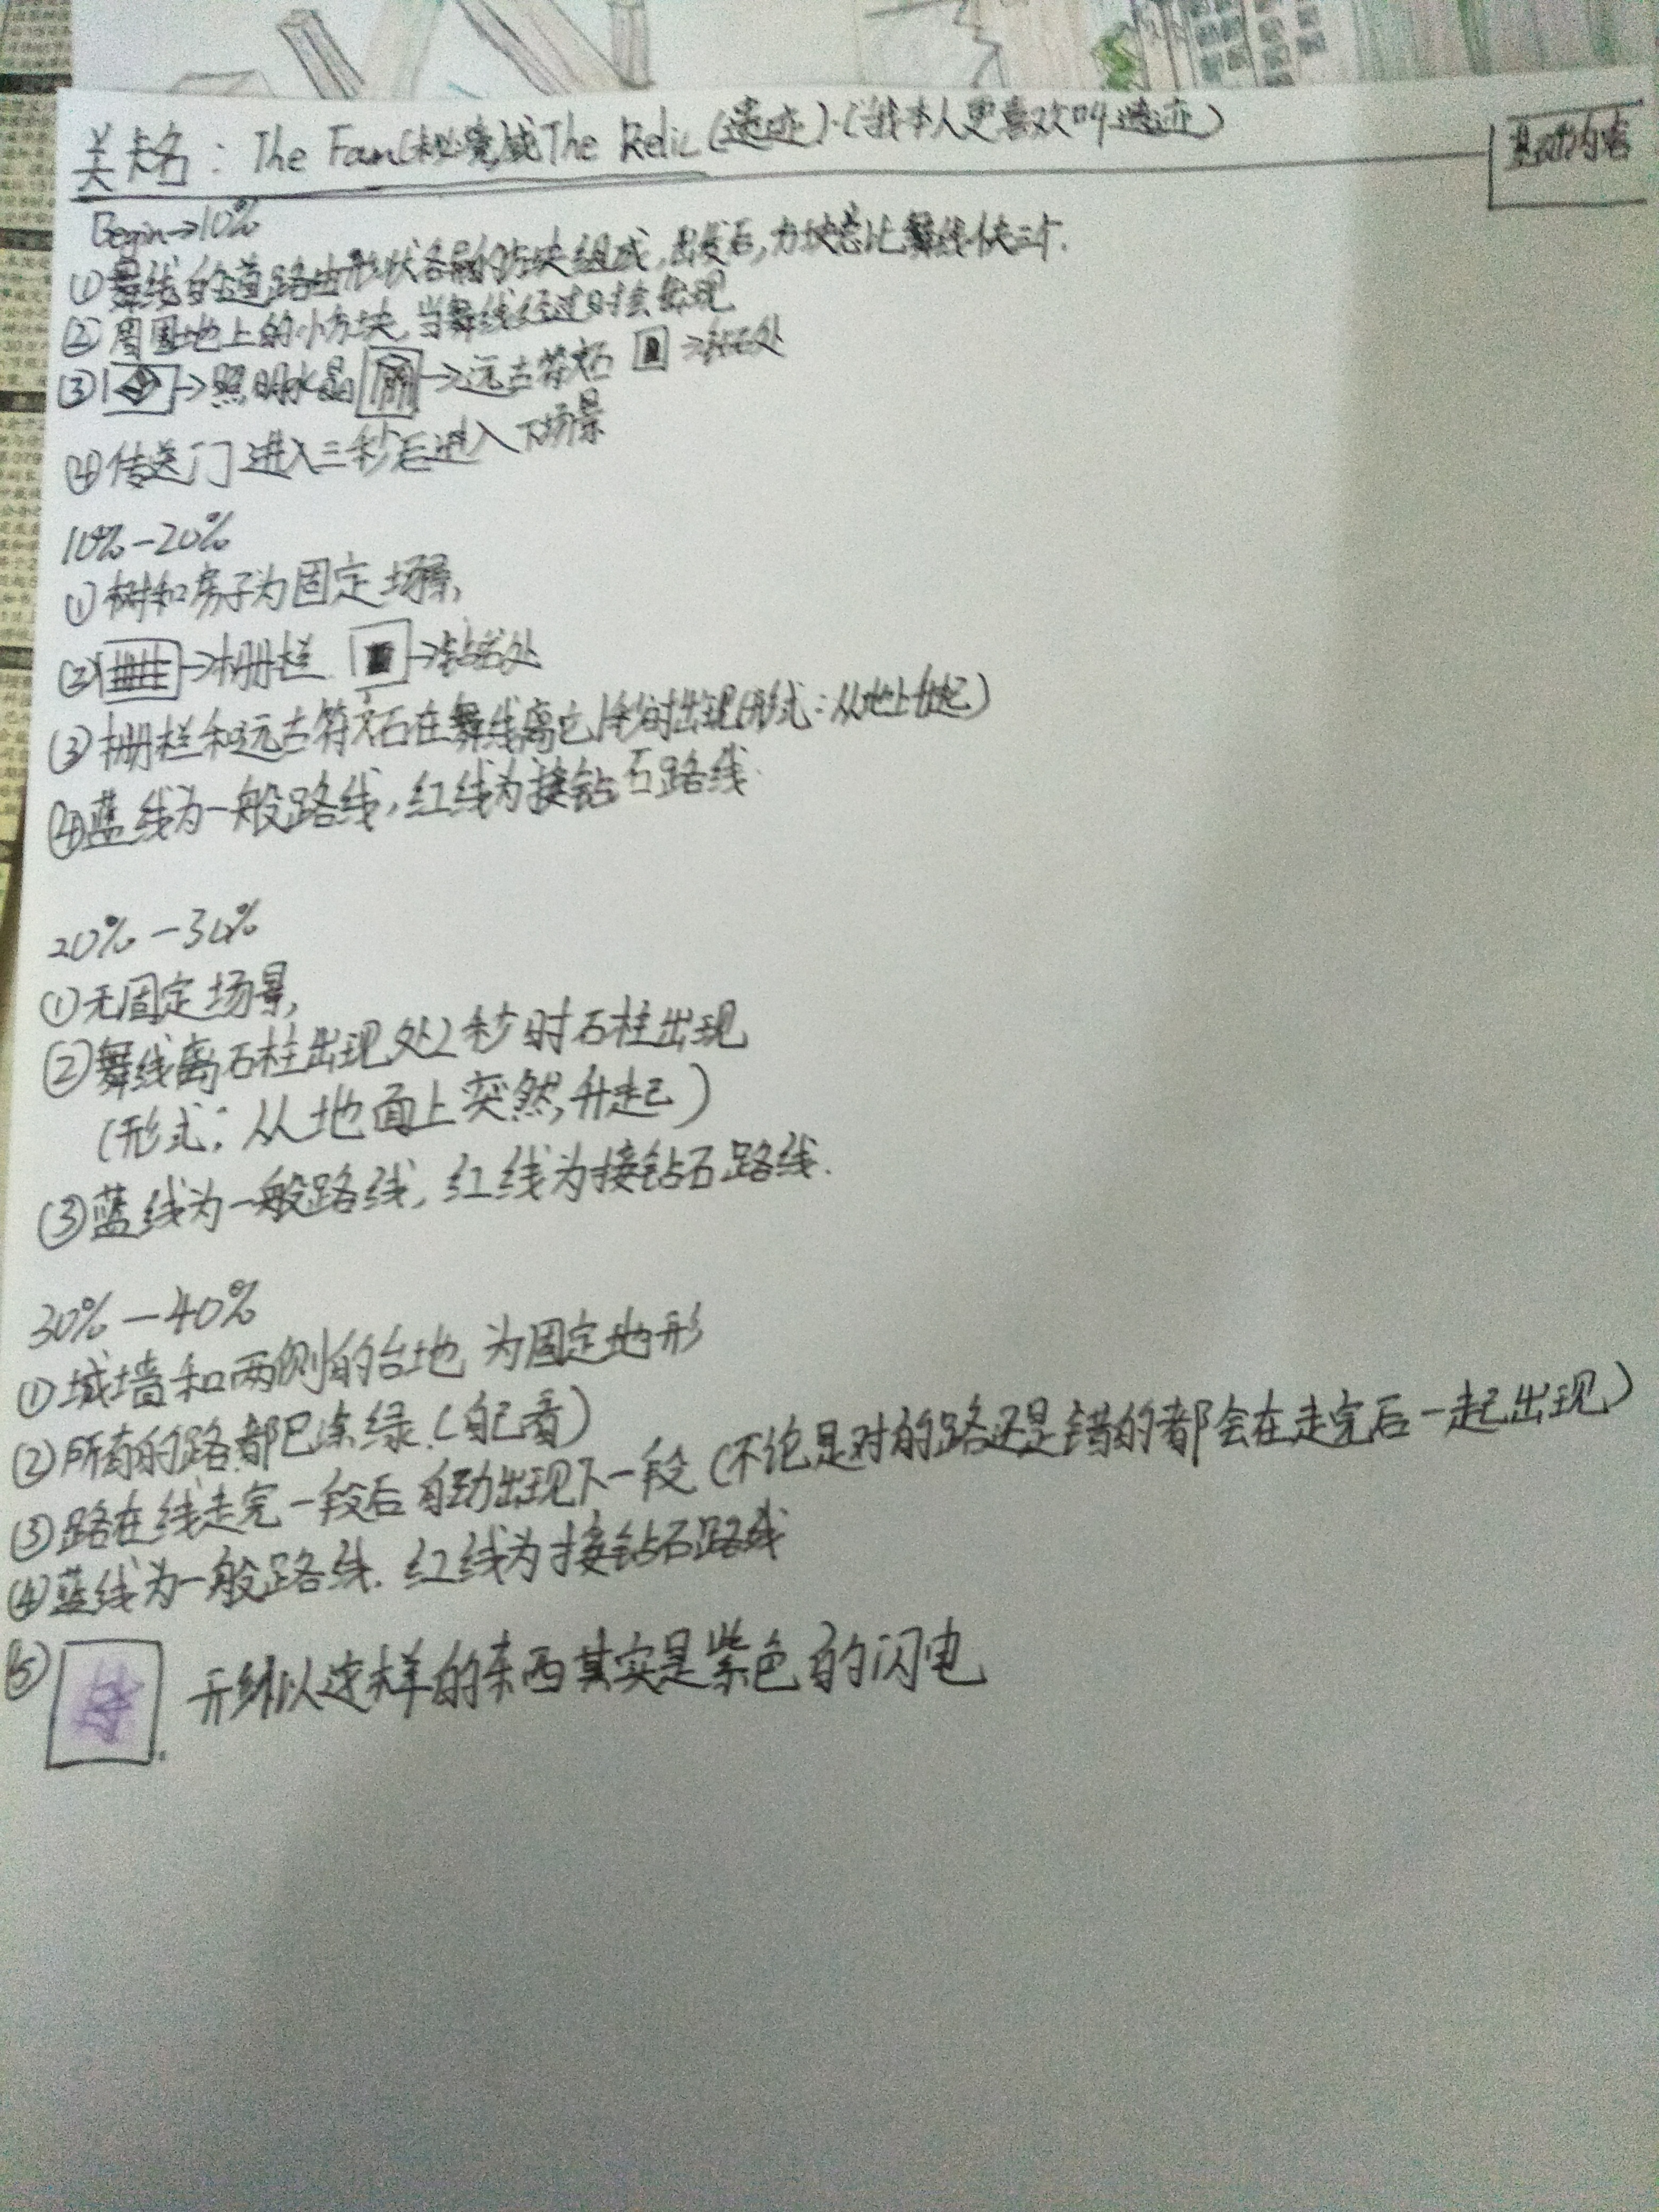 关卡名：The Fam(秘境)或The Relic(遗迹).(我本人更喜欢叫遗迹)
基础内容
Begin→10%
①舞线的道路由形状各异的方块组成,出发后,方块总比舞线快三个.
②周围地上的小方块,当舞线经过时会出现
③→照明水晶 →远古符文石 →钻石处
④传送门进入三秒后进入下场景
10%-20%
①树和房子为固定场景,
②→栅栏. →钻石处
③栅栏和远古符文石在舞线离它1秒时出现(形式：从地上升起)
④蓝线为一般路线,红线为接钻石路线.
20%-30%
①无固定场景,
②舞线离石柱出现处2秒时石柱出现
(形式：从地面上突然升起)
③蓝线为一般路线,红线为接钻石路线.
30%-40%
①城墙和两侧的台地为固定地形
②所有的路都已涂绿.(自己看)
③路在线走完一段后自动出现下一段(不论是对的路还是错的都会在走完后一起出现)
④蓝线为一般路线.红线为接钻石路线
⑤ 形似这样的东西其实是紫色的闪电